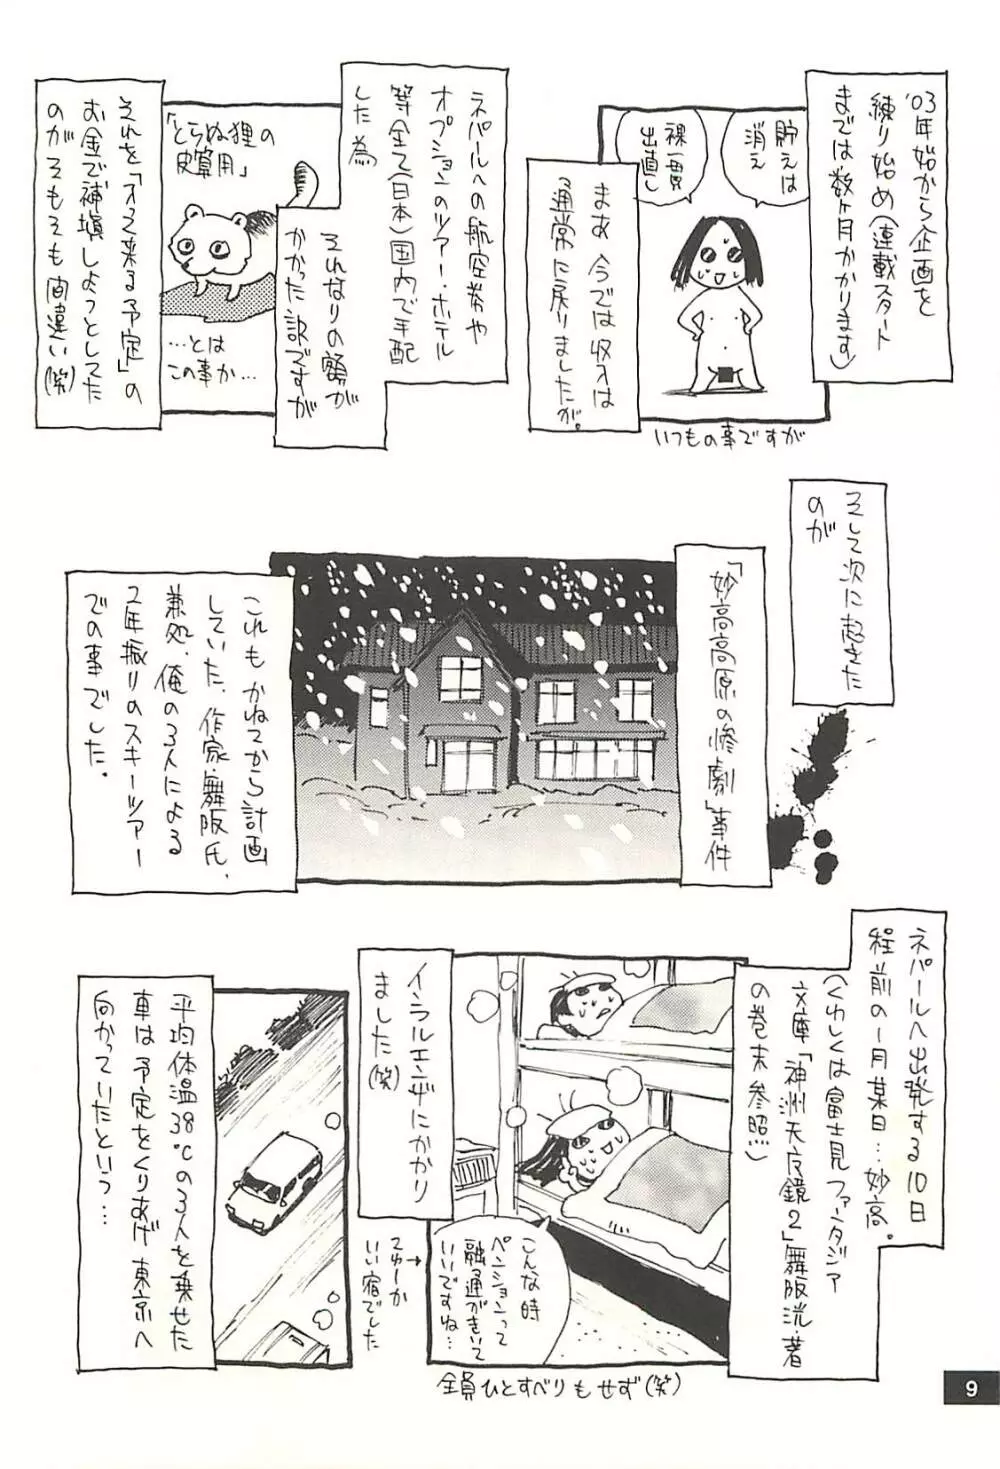 '03年始から企画を
練り始め(連載スタート
までは数ヶ月かかります)
貯えは
消え
裸一貫
出直し
まあ今では収入は
通常に戻りましたが。
いつもの事ですが
ネパールへの航空券や
オプションのツアー・ホテル
等全て(日本)国内で手配
した為
それなりの額が
かかった訳ですが
「とらぬ狸の
皮算用」
…とは
この事か…
それを「オフ来る予定」の
お金で補填しようとしてた
のがそもそも間違い(笑)
そして次に起きた
のが
「妙高高原の惨劇」事件
これもかねてから計画
していた、作家・舞阪氏、
兼処、俺の3人による
2年振りのスキーツアー
での事でした。
ネパールへ出発する10日
程前の1月某日…妙高。
(くわしくは富士見ファンタジア
文庫「神州天魔鏡2」舞阪洸・著
の巻末参照!!)
インフルエンザにかかり
ました(笑)
こんな時
ペンションって
融通がきいて
いいですね…
→
てゆーか
いい宿でした
全員ひとすべりもせず(笑)
平均体温38℃の3人を乗せた
車は予定をくりあげ東京へ
向かっていたという…
9